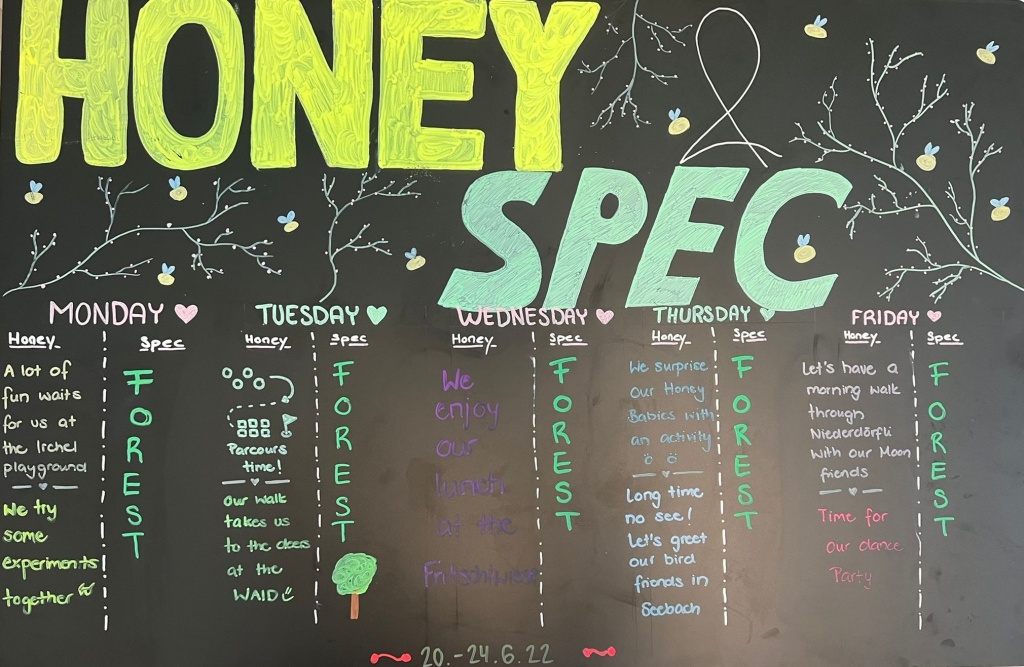 HONEY
&
SPEC
MONDAY
Honey
A lot of
fun waits
for us at
the Irchel
playground
We try
some
experiments
together
Spec
FOREST
TUESDAY
Honey
Parcours
time!
Our walk
takes us
to the deers
at the
WAID
Spec
FOREST
WEDNESDAY
Honey
We
enjoy
our
lunch
at the
Fritschiwiese
Spec
FOREST
THURSDAY
Honey
We surprise
our Honey
Babies with
an activity
Long time
no see!
Let's greet
our bird
friends in
Seebach
Spec
FOREST
FRIDAY
Honey
Let's have a
morning walk
through
Niederdörfli
with our Moon
friends
Time for
our dance
Party
Spec
FOREST
20.-24.6.22